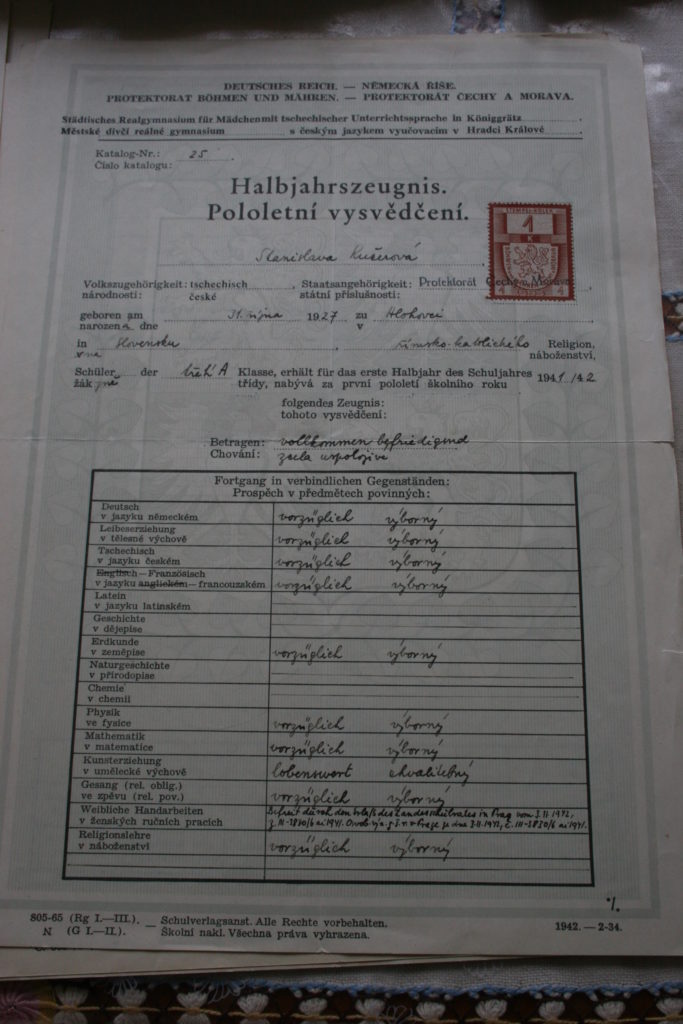 DEUTSCHES REICH. — NĚMECKÁ ŘÍŠE.
PROTEKTORAT BÖHMEN UND MÄHREN. — PROTEKTORÁT ČECHY A MORAVA.
Städtisches Realgymnasium für Mädchen mit tschechischer Unterrichtssprache in Königgrätz
Městské dívčí reálné gymnasium s českým jazykem vyučovacím v Hradci Králové
Katalog-Nr.: 25
Číslo katalogu:
Halbjahrszeugnis.
Pololetní vysvědčení.
STEMPEL-KOLEK
1
K
4 4
Stanislava Kučerová
Volkszugehörigkeit: tschechisch Staatsangehörigkeit: Protektorát Čechy a Morava
národnosti: české státní příslušnosti:
geboren am 31. října 1927 zu Hlohovci
narozena dne v
in Slovensku římsko-katolického Religion,
na náboženství,
Schüler der třetí A Klasse, erhält für das erste Halbjahr des Schuljahres 1941/42
žákyně třídy, nabývá za první pololetí školního roku
folgendes Zeugnis:
tohoto vysvědčení:
Betragen: vollkommen befriedigend
Chování: zcela uspokojivé
Fortgang in verbindlichen Gegenständen:
Prospěch v předmětech povinných:
Deutsch
v jazyku německém vorzüglich výborný
Leibeserziehung
v tělesné výchově vorzüglich výborný
Tschechisch
v jazyku českém vorzüglich výborný
Englisch—Französisch
v jazyku anglickém—francouzském vorzüglich výborný
Latein
v jazyku latinském
Geschichte
v dějepise
Erdkunde
v zeměpise vorzüglich výborný
Naturgeschichte
v přírodopise
Chemie
v chemii
Physik
ve fysice vorzüglich výborný
Mathematik
v matematice vorzüglich výborný
Kunsterziehung
v umělecké výchově lobenswert chvalitebný
Gesang (rel. oblig.)
ve zpěvu (rel. pov.) vorzüglich výborný
Weibliche Handarbeiten Befreit durch den Erlaß des Landesschulrates in Prag vom 3.II.1942,
v ženských ručních pracích
Religionslehre
v náboženství vorzüglich výborný
805-65 (Rg I.—III.). — Schulverlagsanst. Alle Rechte vorbehalten.
N (G I.—II.). Školní nakl. Všechna práva vyhrazena.
1942. — 2-34.